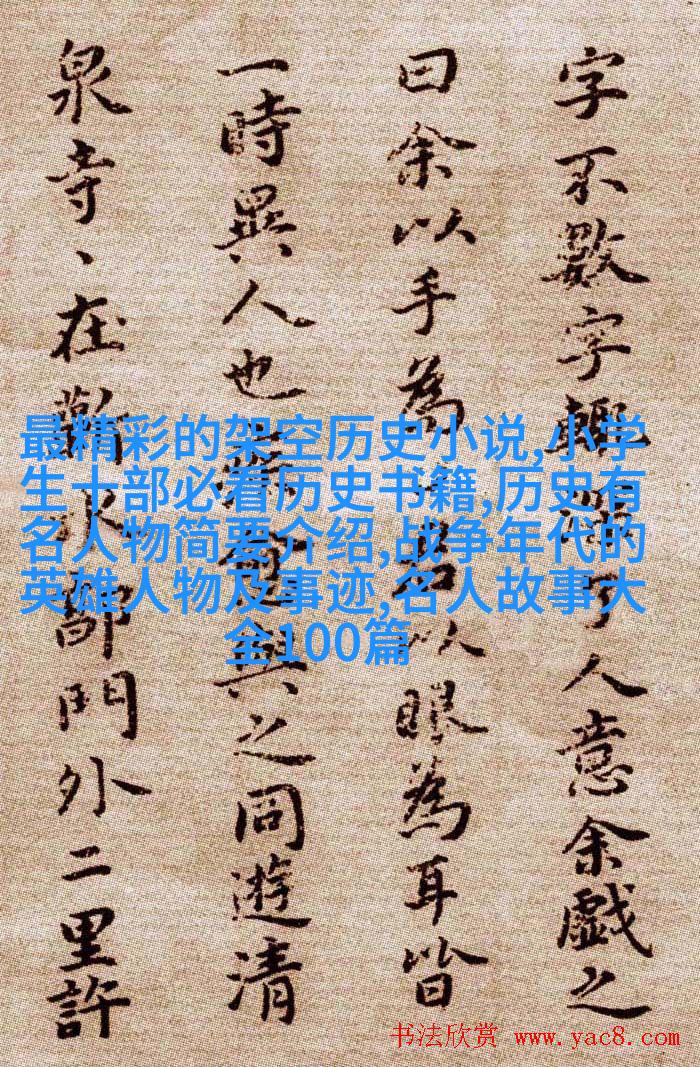 字不數字輒了人意余戲之
曰余以手為君以眼為耳皆
一時異人也與之同遊清
泉寺、在蘄水郭門外二里許
最精彩的架空历史小说,小学
生十部必看历史书籍,历史有
名人物简要介绍,战争年代的
英雄人物及事迹,名人故事大
全100篇
书法欣赏 www.yac8.com